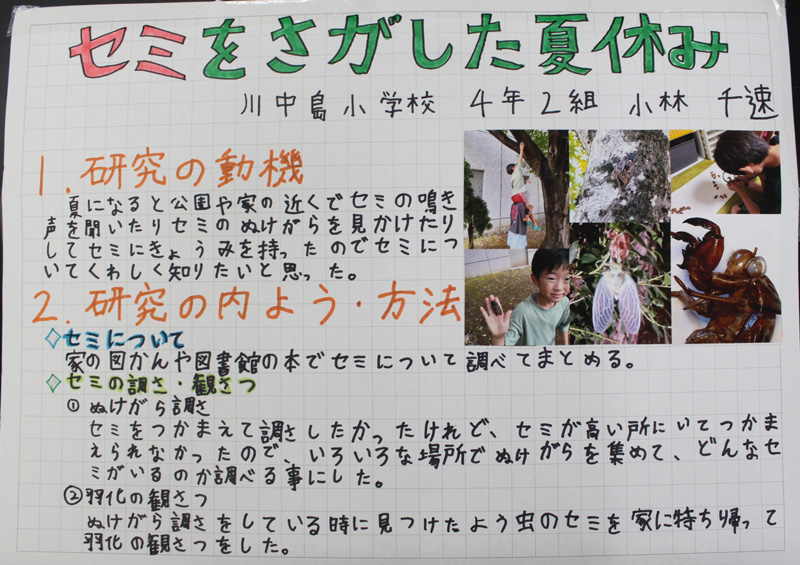 セミをさがした夏休み
川中島小学校 4年2組 小林 千速
1. 研究の動機
夏になると公園や家の近くでセミの鳴き
声を聞いたりセミのぬけがらを見かけたり
してセミにきょうみを持ったのでセミにつ
いてくわしく知りたいと思った。
2. 研究の内よう・方法
◇セミについて
家の図かんや図書館の本でセミについて調べてまとめる。
◇セミの調さ・観さつ
① ぬけがら調さ
セミをつかまえて調さしたかったけれど、セミが高い所にいてつかま
えられなかったので、いろいろな場所でぬけがらを集めて、どんなセ
ミがいるのか調べる事にした。
②羽化の観さつ
ぬけがら調さをしている時に見つけたよう虫のセミを家に持ち帰って
羽化の観さつをした。